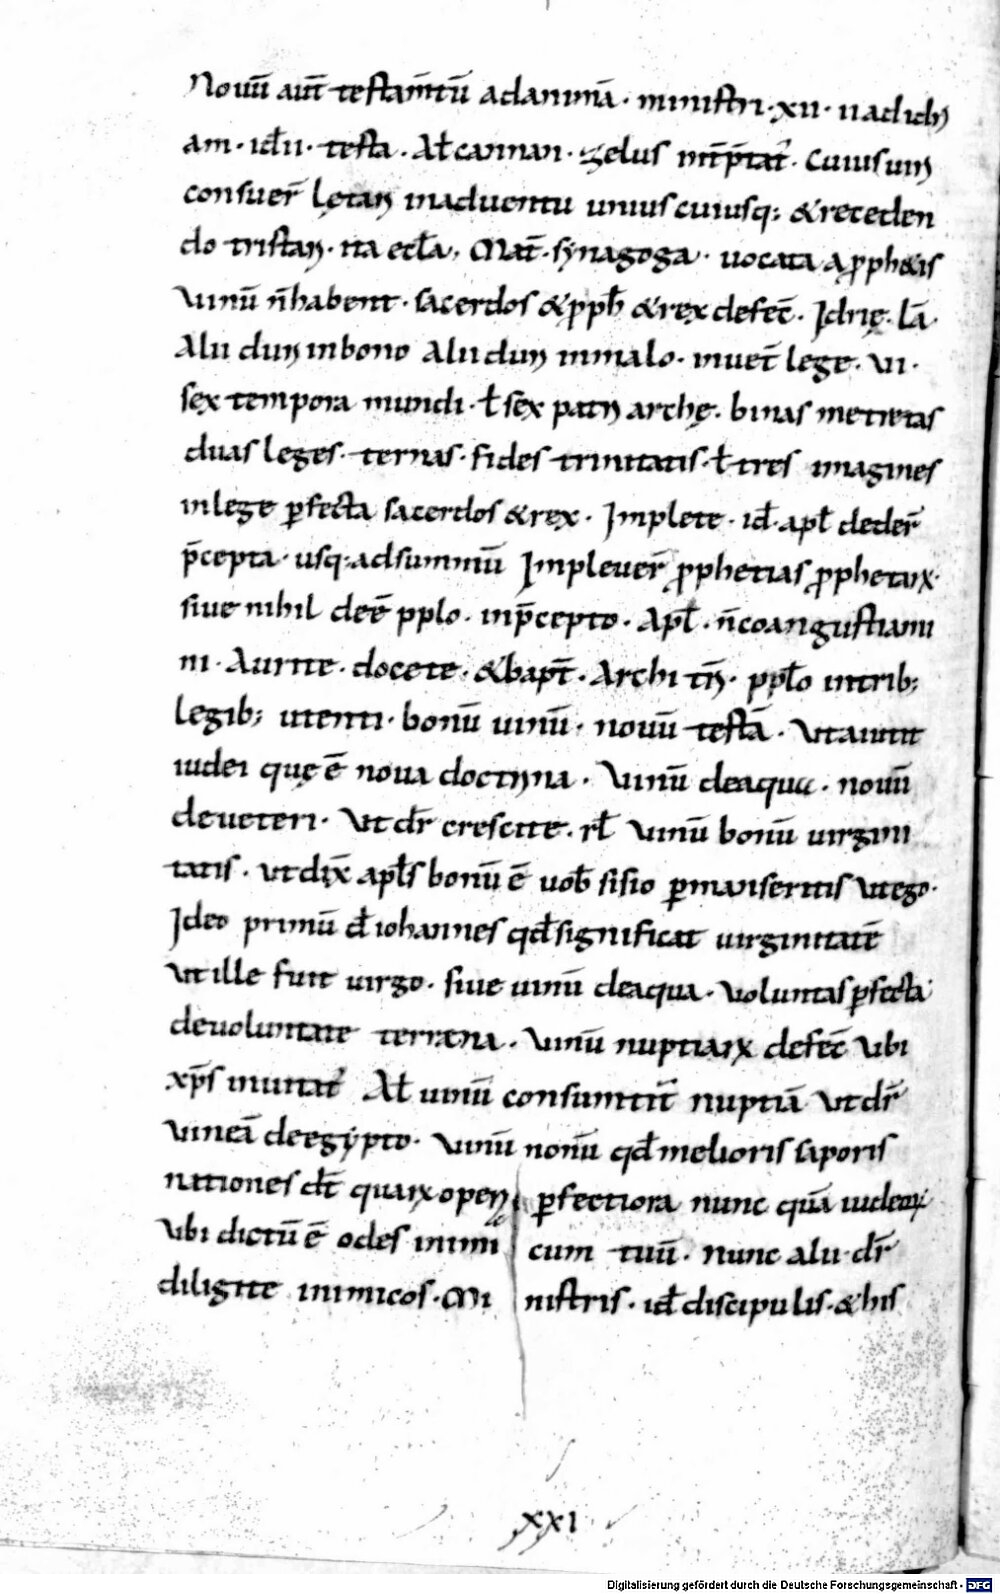 Nouū aut̄ testam̄tū adanimā · ministri · xii · uadidē
am · id ii · testa · Al̄ cannan · zelus int̄p̄tat̄ · cuius uiri
consuer̄ lętari inaduentu unius cuiusq; & receden
do tristari · ita eccl̄a, Mat̄ · synagoga · uocata a prph&is
Vinū n̄ habent · sacerdos & pph̄ & rex defec̄ · Jdrię · lā ·
Alii duri in bono Alii duri in malo · in uet̄ lege · vi ·
sex tempora mundi · ł sex patri archę · binas metretas
duas leges · ternas · fides trinitatis · ł tres imagines
in lege p̲fecta sacerdos & rex · Jmplete · id̄ · apl̄ deder̄
p̄cepta · usq; ad summū Jmpleuer̄ prophetias prophetaꝝ ·
siue nihil deē pplo · in p̄cepto · Apl̄ · n̄ coangustiami
ni · Aurite · docete · & bapt̄ · Archi tr̄i · ppl̄o in trib;
legib; utenti · bonū uinū · nouū testā · Vt aiunt
iudei quę ē noua doctrina · Vinū de aqua · nouū
de ueteri · Vt dr̄ crescite · rł Vinū bonū uirgini
tatis · ut dix̄ apl̄s bonū ē uob̄ si sic p̲manseritis Vt ego ·
Jdeo primū d̄ iohannes qd̄ significat uirginitatē
Vt ille fuit uirgo · siue uinū de aqua · Voluntas p̲fecta
de uoluntate terrena · Vinū nuptiaꝝ defec̄ Vbi
xp̄s inuitat̄ Al̄ uinū consumtū nuptiā Vt dr̄
Vineā de egypto · Vinū nouū qd̄ melioris saporis
nationes dt̄ quaꝝ opera p̲fectiora nunc quā iudeoꝝ
Vbi dictū ē odes inimi cum tuū · nunc alii dr̄
diligite inimicos · Mi nistris · id̄ discipulis · & his
xxi
Digitalisierung gefördert durch die Deutsche Forschungsgemeinschaft - DFG